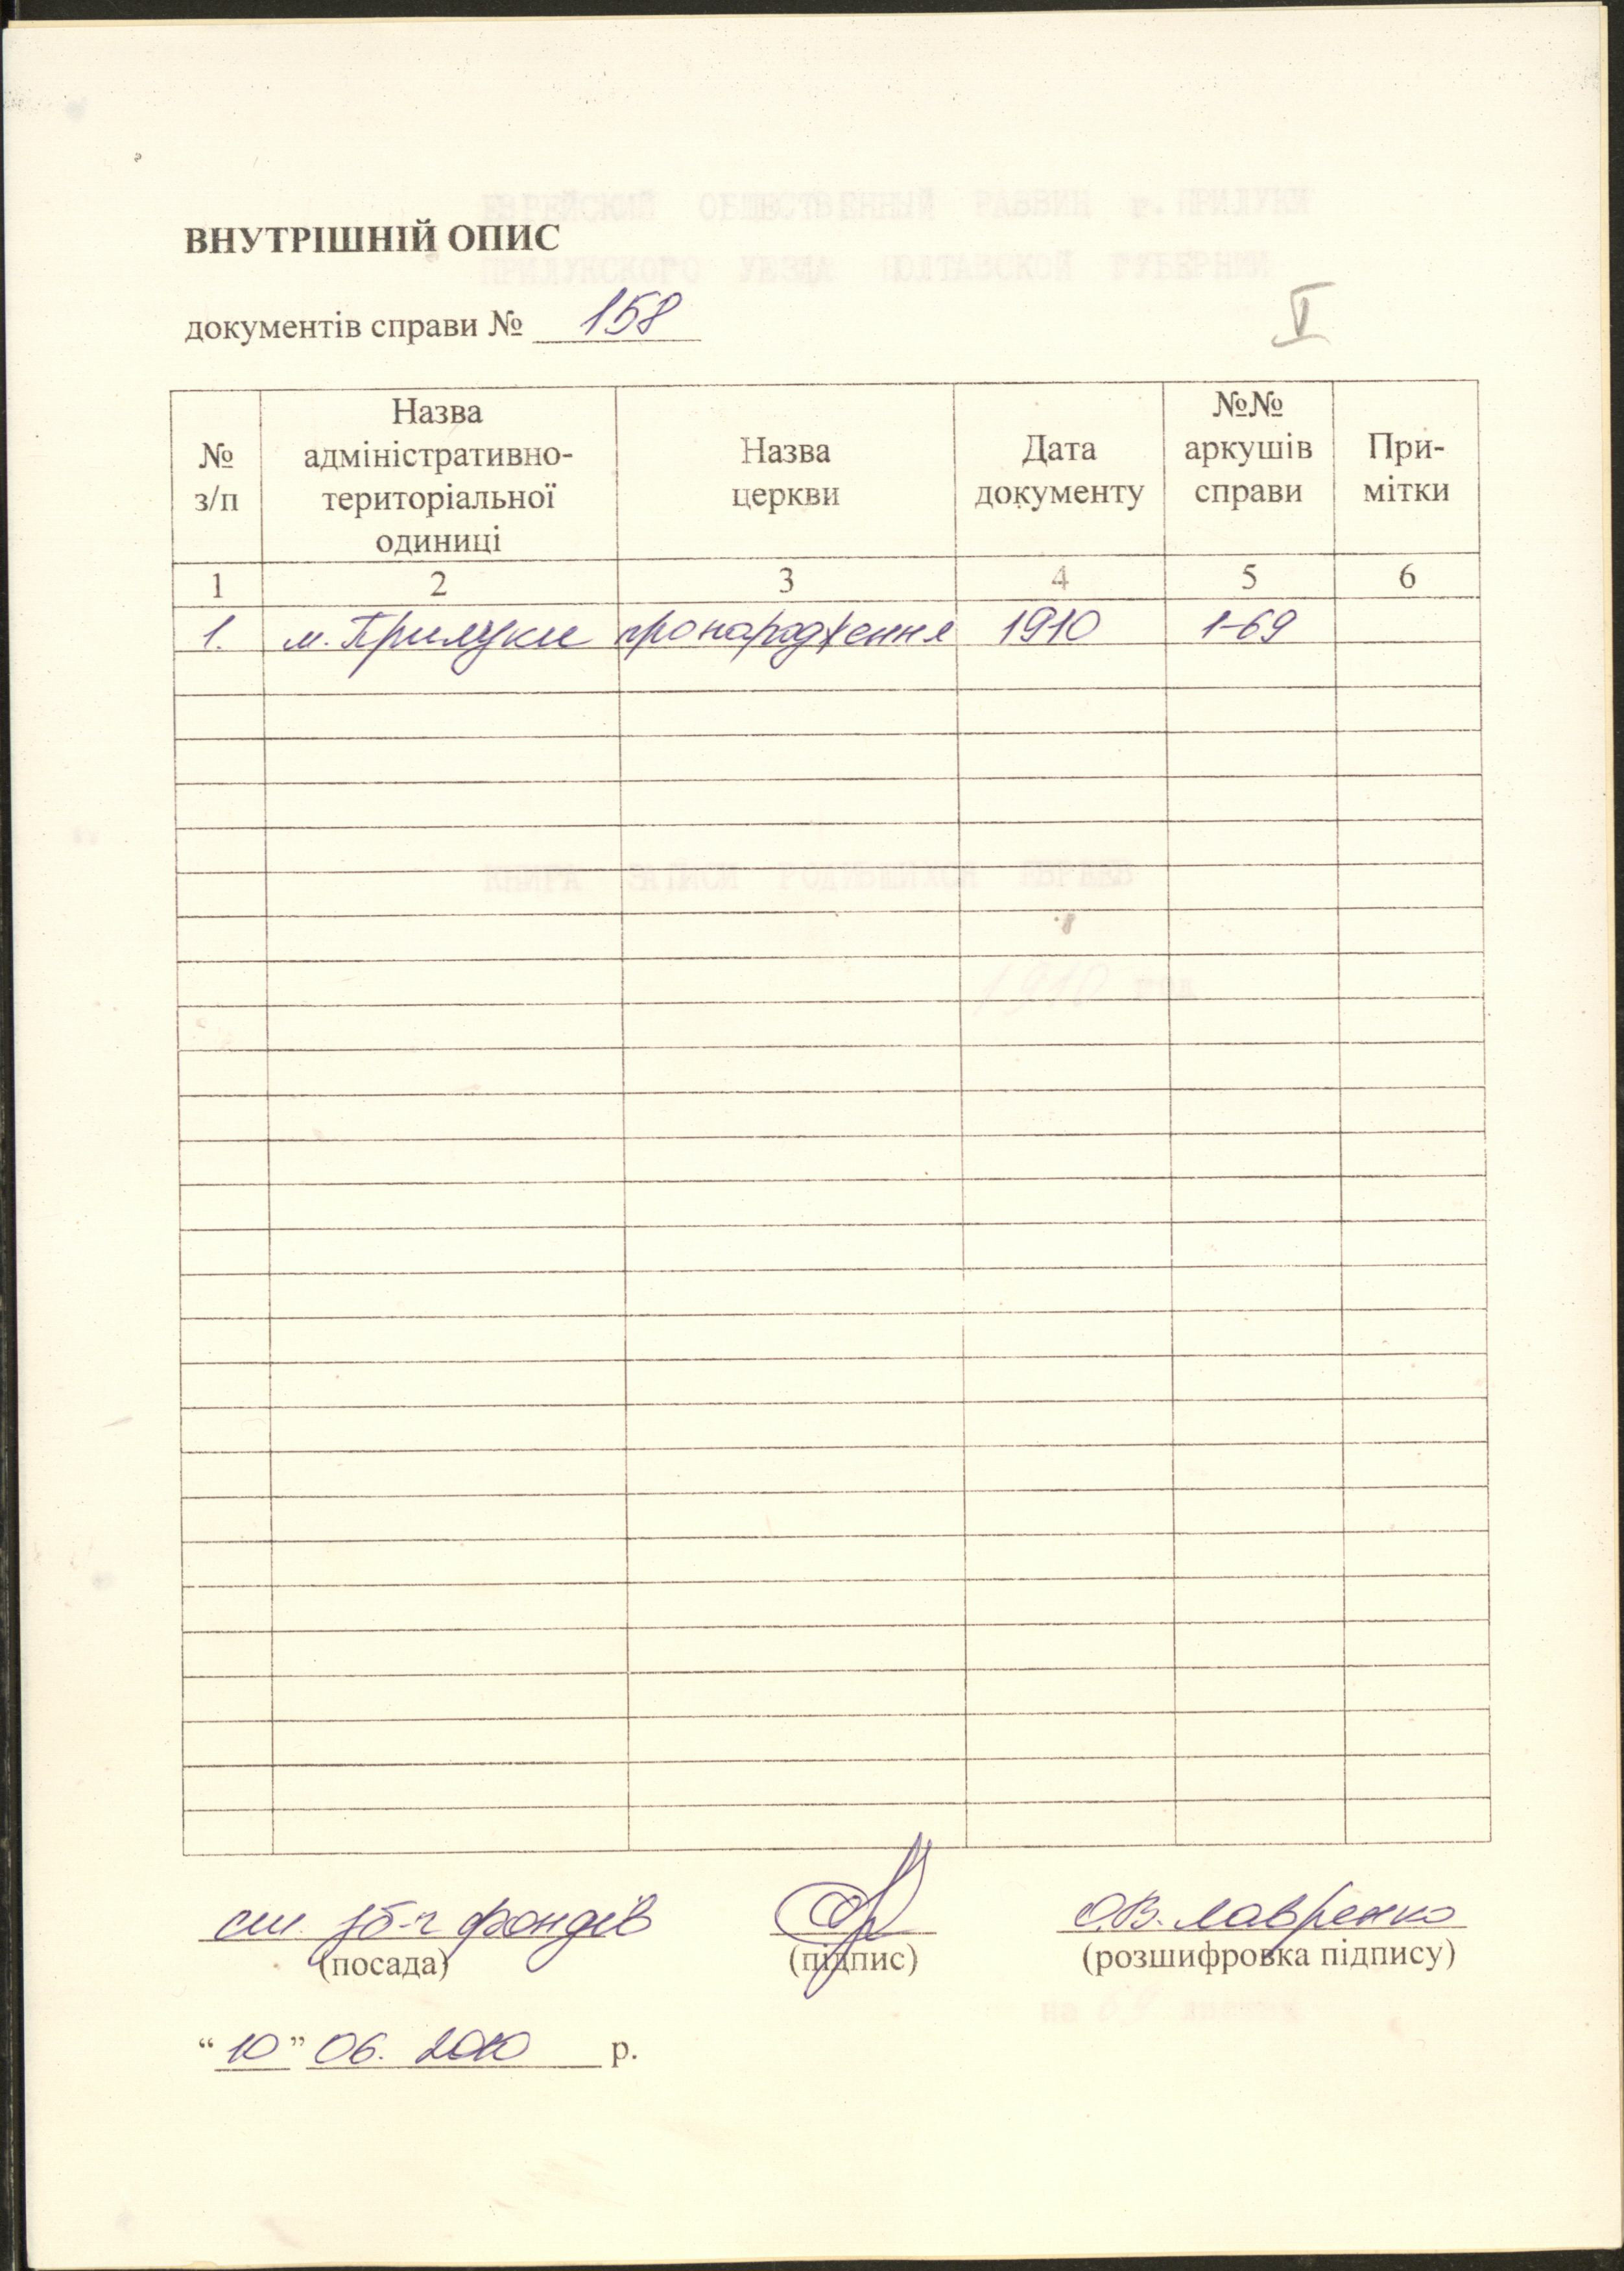 ЕВРЕЙСКИЙ ОБЩЕСТВЕННЫЙ РАВВИН г. ПРИЛУКИ
ПРИЛУКСКОГО УЕЗДА ПОЛТАВСКОЙ ГУБЕРНИИ
ВНУТРІШНІЙ ОПИС
документів справи № 158
V
№ з/п
Назва адміністративно-територіальної одиниці
Назва церкви
Дата документу
№№ аркушів справи
При-мітки
1 2 3 4 5 6
1. м. Прилуки про народження 1910 1-69
КНИГА ЗАПИСИ РОДИВШИХСЯ ЕВРЕЕВ
1910 год
фондів О.В. Лавренко
(посада) (підпис) (розшифровка підпису)
на 69 листах
“10” 06. 2010 р.